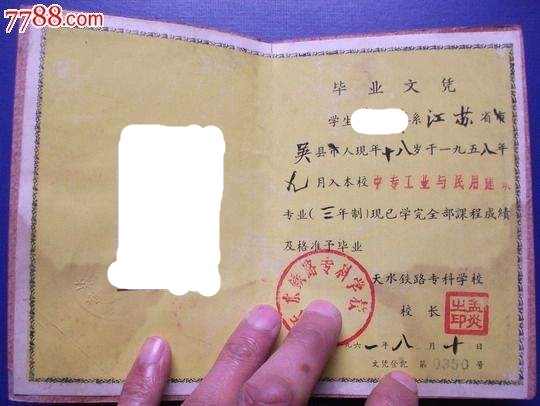 7788.com
毕业文凭
学生 系江苏省
吴县市人现年十八岁于一九五八年
九月入本校中专工业与民用建
专业(三年制)现已学完全部課程成績
及格准予毕业
天水铁路专科学校
校长
孟炎之印
铁路专科学校
九六一年八月十日
文凭登記 第0350号